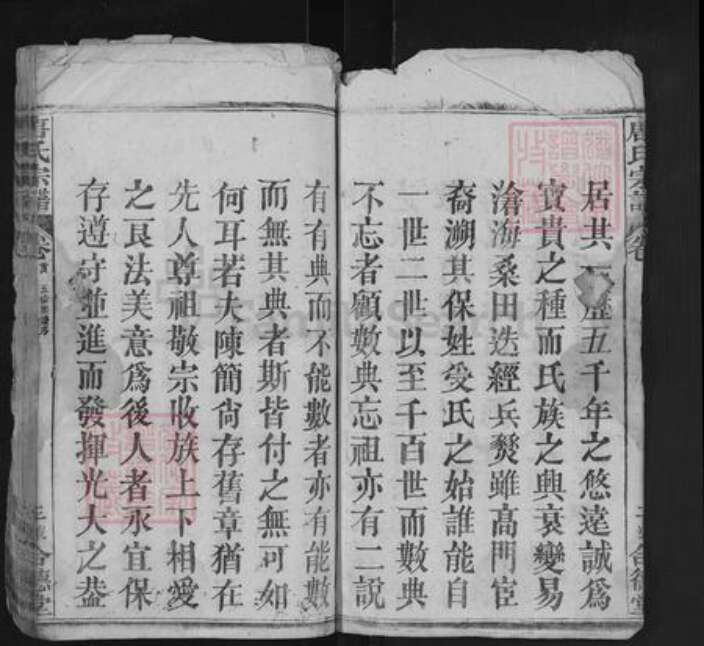 居其　歷五千年之悠遠誠爲
寶貴之種而氏族之興衰變易
滄海桑田迭經兵燹雖高門宦
裔溯其保姓受氏之始誰能自
一世二世以至千百世而數典
不忘者顧數典忘祖亦有二說
有有典而不能數者亦有能數
而無其典者斯皆付之無可如
何耳若夫陳簡尙存舊章猶在
先人尊祖敬宗收族上下相愛
之良法美意爲後人者永宜保
存遵守並進而發揮光大之葢
氏宗譜 卷首